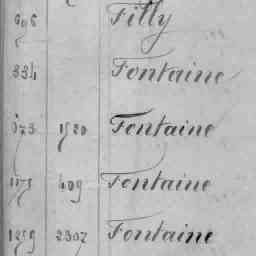 606 Filly
334 Fontaine
673 1520 Fontaine
1175 409 Fontaine
1259 2307 Fontaine